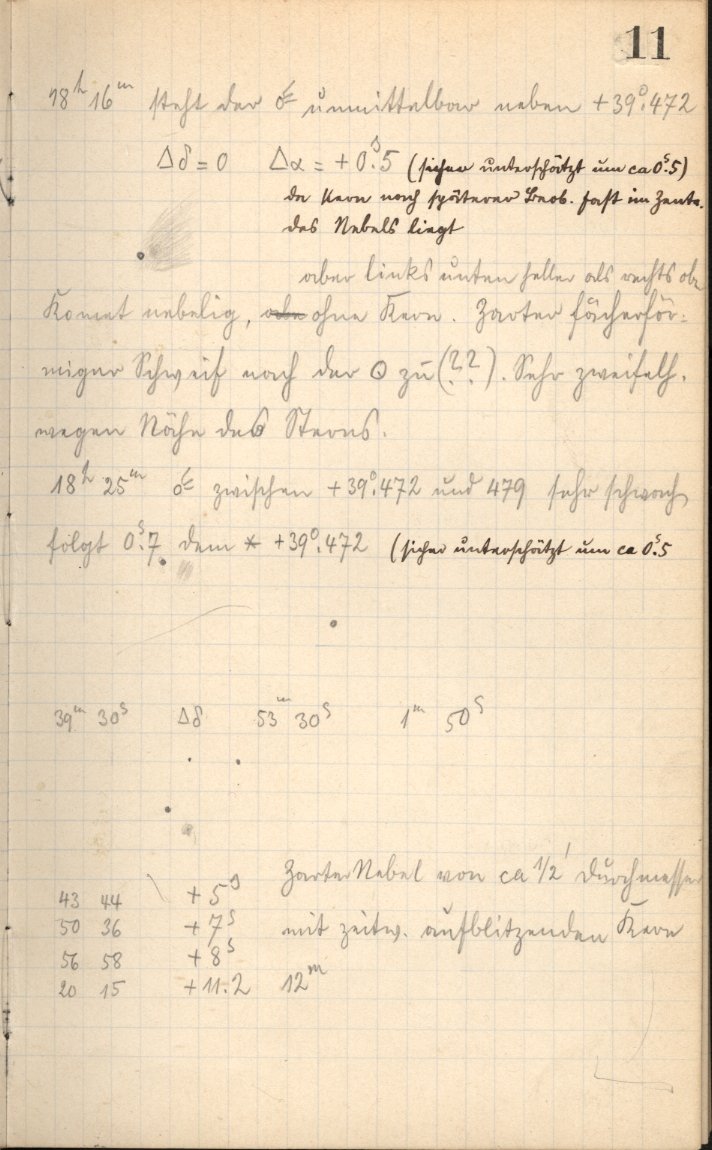 11
18ʰ 16ᵐ steht der ☄ unmittelbar neben +39°.472
Δδ = 0 Δα = +0ˢ.5 (sicher unterschätzt um ca 0ˢ.5)
da Kern nach späterer Beob. fast im Zentr.
des Nebels liegt
aber links unten heller als rechts obe
Komet nebelig, ohne Kern. Zarter fächerför-
miger Schweif nach der ⊙ zu (??). Sehr zweifelh.
wegen Nähe des Sterns.
18ʰ 25ᵐ ☄ zwischen +39°.472 und 479 sehr schwach
folgt 0ˢ.7 dem * +39°.472 (sicher unterschätzt um ca 0ˢ.5
39ᵐ 30ˢ Δδ 53ᵐ 30ˢ 1ᵐ 50ˢ
Zarter Nebel von ca 1/2' Durchmesser
43 44 +5ˢ
50 36 +7ˢ mit zeitw. aufblitzenden Kern
56 58 +8ˢ
20 15 +11.2 12ᵐ